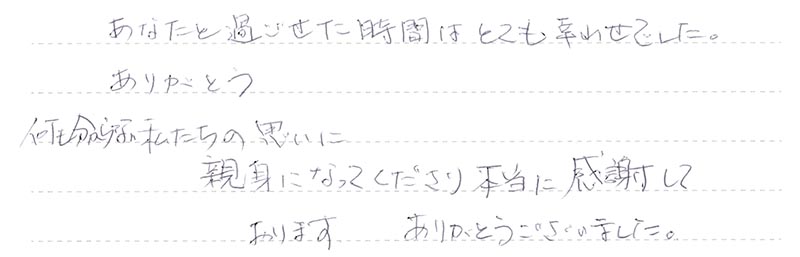 あなたと過ごせた時間はとても幸わせでした。
ありがとう
何も分からない私たちの思いに
親身になってくださり本当に感謝して
おります　ありがとうございました。